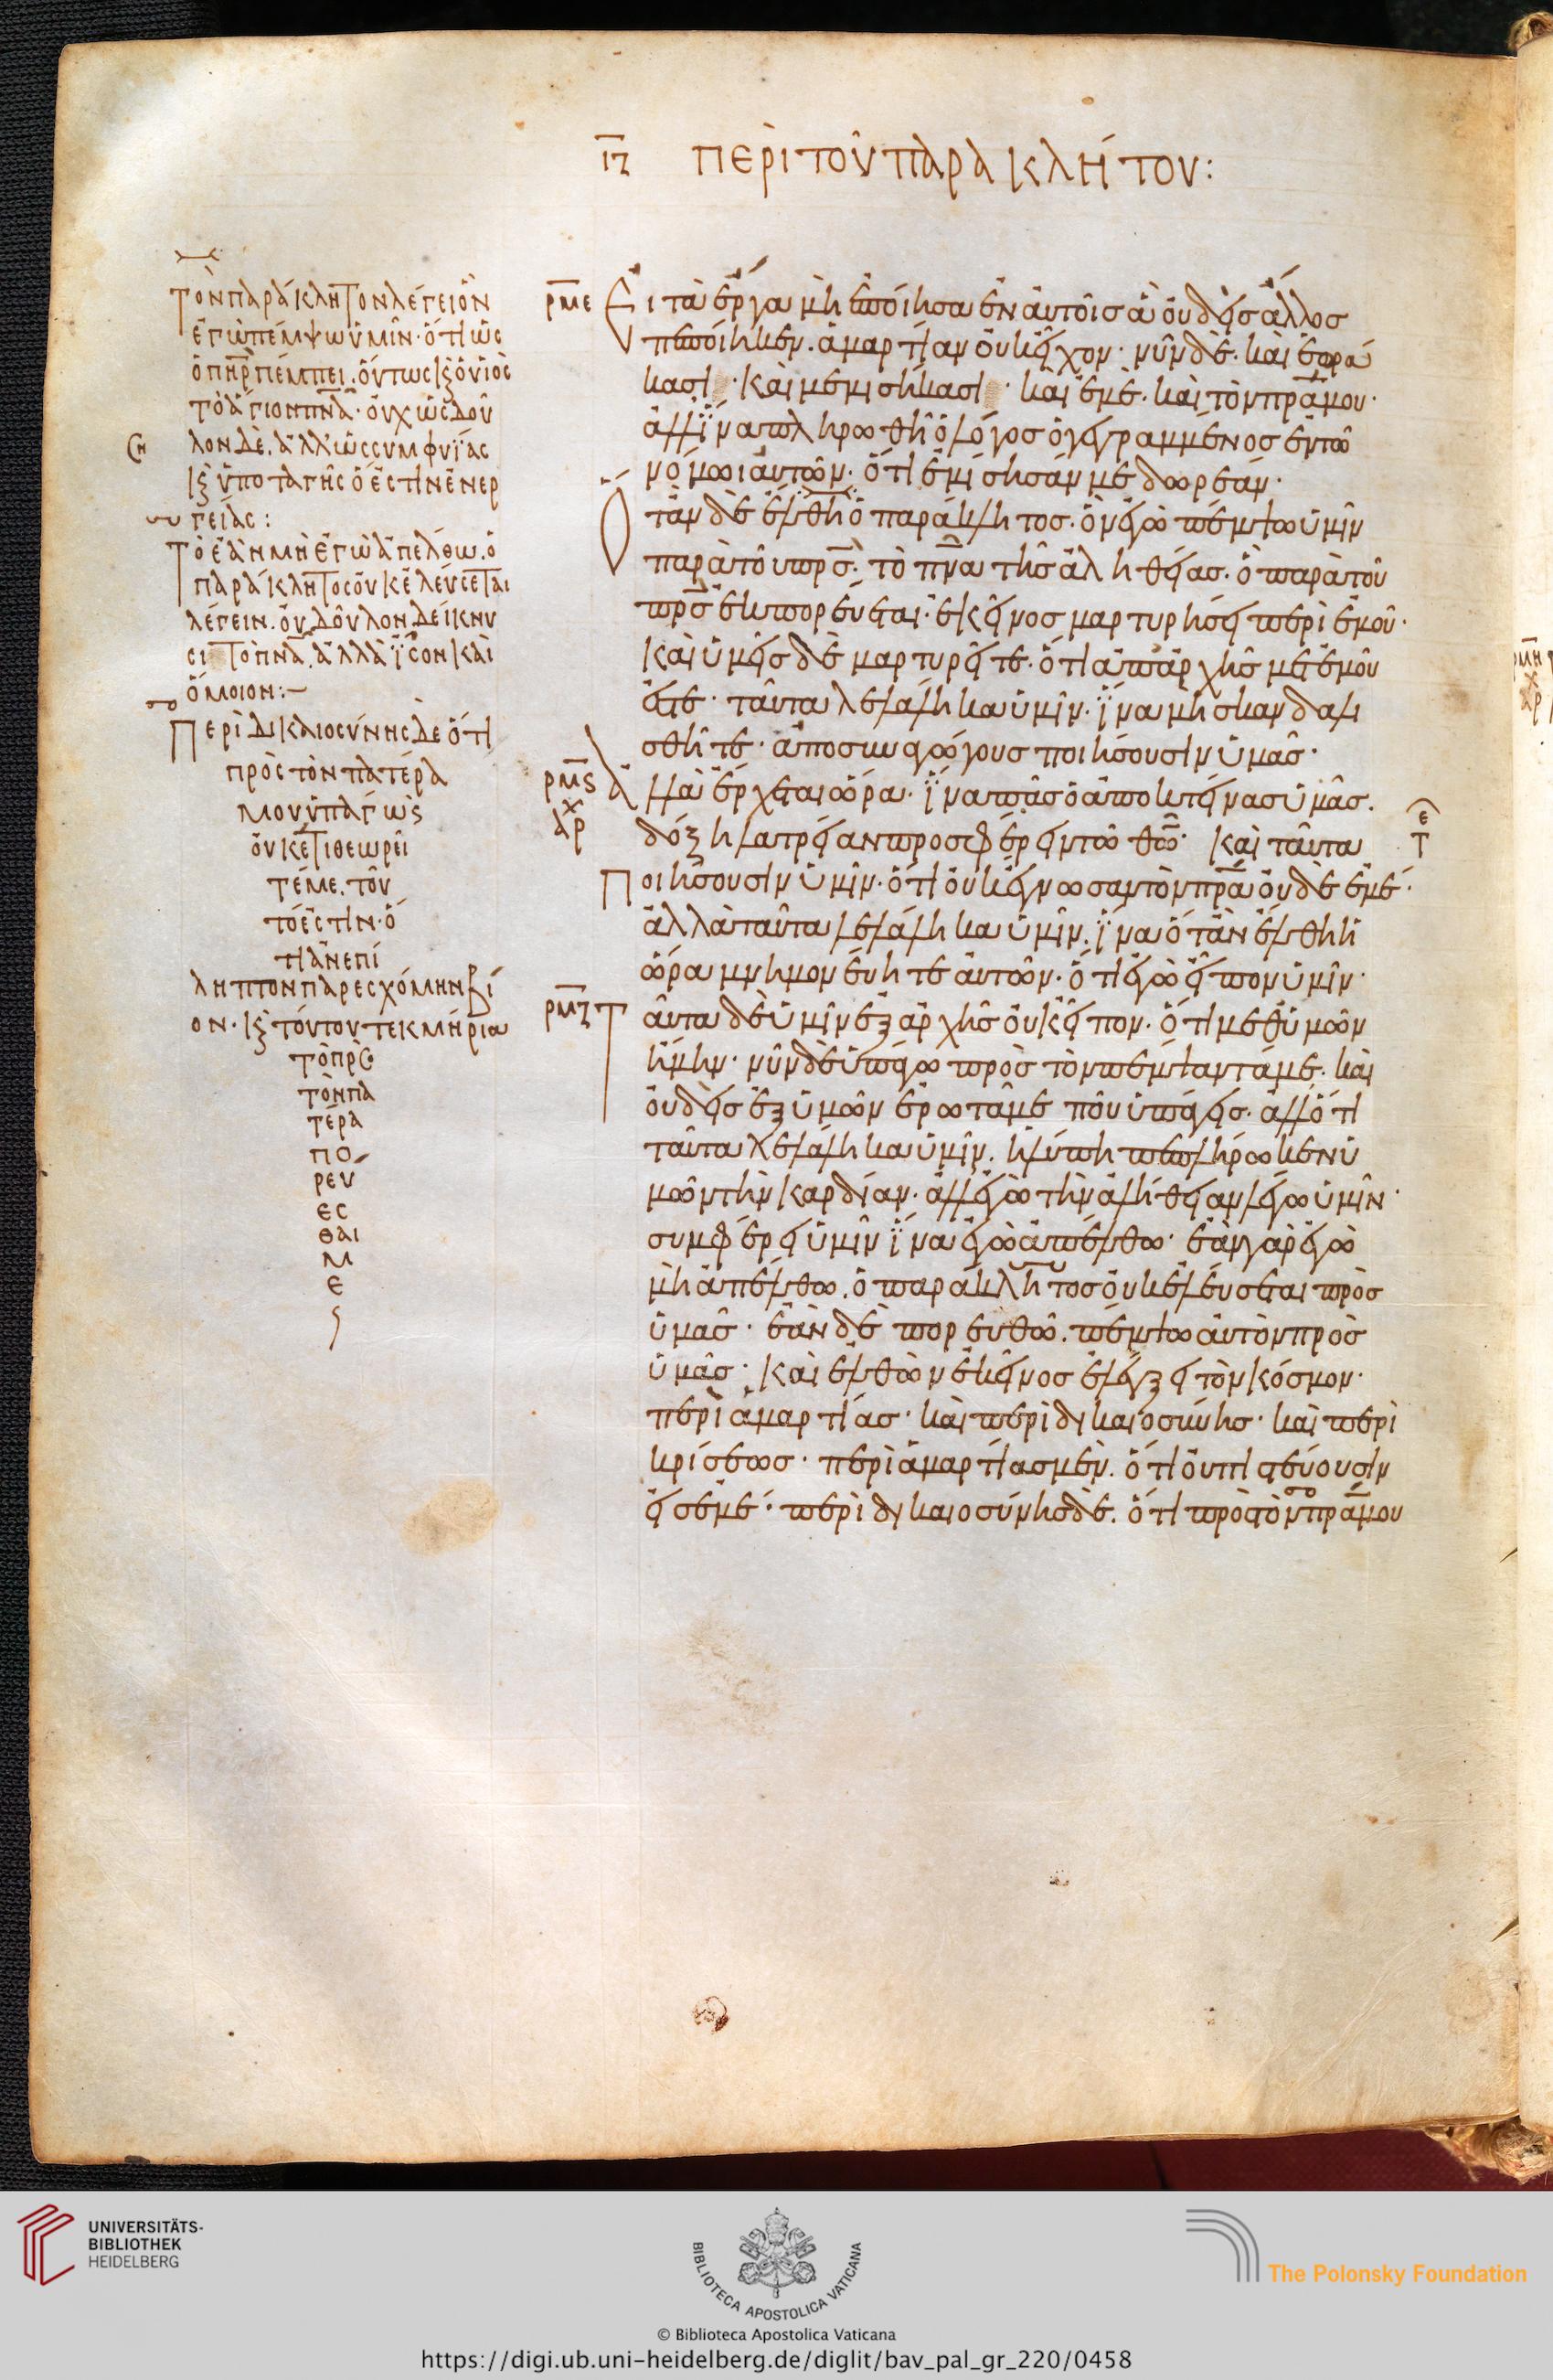 ιζ ΠΕΡὶ ΤΟῦ ΠΑΡΑΚΛΉΤΟΥ:
Τὸν παράκλητον λέγει ὃν
ἐγὼ πέμψω ὑμῖν· ὅτι ὡς
ὁ πηρ πέμπει. οὕτως κ ὁ υἱὸς
τὸ ἅγιον πνα· οὐχ ὡς δοῦ
λον δὲ. ἀλλ' ὡς συμφυΐας
κ ὑποταγῆς ὅ ἐστιν ἐνερ
γείας:
Τὸ ἐὰν μὴ ἐγὼ ἀπέλθω. ὁ
παράκλητος οὐκ ἐλεύσεται
λέγειν. οὐ δοῦλον δείκνυ
σι τὸ πνα. ἀλλὰ ἴσον καὶ
ὅμοιον:—
Περὶ δικαιοσύνης δὲ ὅτι
πρὸς τὸν πατέρα
μου ὑπάγω κ
οὐκέτι θεωρεῖ
τέ με. τοῦ
τό ἐστιν· ὅ
τι ἀνεπί
ληπτον παρεσχόμην βί
ον· κ τούτου τεκμήρια
τὸ πρς
τὸν πα
τέρα
πο
ρεύ
εσ
θαι
μ
ε
ρμε Εἰ τὰ ἔργα μὴ ἐποίησα ἐν αὐτοῖς ἃ οὐδεὶς ἄλλος
πεποίηκεν. ἁμαρτίαν οὐκ εἶχον· νῦν δὲ. καὶ ἑωρά
κασι · καὶ μεμισήκασι · καὶ ἐμὲ. καὶ τὸν πρα μου·
ἀλλ' ἵνα πληρωθῆ ὁ λόγος ὁ γεγραμμένος ἐν τῶ
νόμωι αὐτῶν· ὅτι ἐμίσησάν με δωρεάν·
Ὅταν δὲ ἔλθη ὁ παράκλητος. ὃν ἐγὼ πέμψω ὑμῖν
παρὰ τοῦ πρς. τὸ πνα τῆς ἀληθείας. ὃ παρὰ τοῦ
πρς ἐκπορεύεται· ἐκεῖνος μαρτυρήσει περὶ ἐμοῦ·
καὶ ὑμεῖς δὲ μαρτυρεῖτε. ὅτι ἀπ' ἀρχῆς μετ' ἐμοῦ
ἐστε· ταῦτα λελάληκα ὑμῖν. ἵνα μὴ σκανδαλι
σθῆτε· ἀποσυναγώγους ποιήσουσιν ὑμᾶς·
ρμς Ἀλλὰ ἔρχεται ὥρα· ἵνα πᾶς ὁ ἀποκτείνας ὑμᾶς.
δόξη λατρείαν προσφέρειν τῶ θω· καὶ ταῦτα
ποιήσουσιν ὑμῖν· ὅτι οὐκ ἔγνωσαν τὸν πρα οὐδὲ ἐμέ·
ἀλλὰ ταῦτα λελάληκα ὑμῖν. ἵνα ὅταν ἔλθη ἡ
ὥρα μνημονεύητε αὐτῶν· ὅτι ἐγὼ εἶπον ὑμῖν·
ρμζ Ταῦτα δὲ ὑμῖν ἐξ ἀρχῆς οὐκ εἶπον. ὅτι μεθ' ὑμῶν
ἤμην· νῦν δὲ ὑπάγω πρὸς τὸν πέμψαντά με. καὶ
οὐδεὶς ἐξ ὑμῶν ἐρωτᾶ με ποῦ ὑπάγεις. ἀλλ' ὅτι
ταῦτα λελάληκα ὑμῖν. ἡ λύπη πεπλήρωκεν ὑ
μῶν τὴν καρδίαν· ἀλλ' ἐγὼ τὴν ἀλήθειαν λέγω ὑμῖν·
συμφέρει ὑμῖν ἵνα ἐγὼ ἀπέλθω· ἐὰν γὰρ ἐγὼ
μὴ ἀπέλθω. ὁ παράκλητος οὐκ ἐλεύσεται πρὸς
ὑμᾶς· ἐὰν δὲ πορευθῶ. πέμψω αὐτὸν πρὸς
ὑμᾶς· καὶ ἐλθὼν ἐκεῖνος ἐλέγξει τὸν κόσμον·
περὶ ἁμαρτίας· καὶ περὶ δικαιοσύνης· καὶ περὶ
κρίσεως· περὶ ἁμαρτίας μὲν. ὅτι οὐ πιστεύουσιν
εἰς ἐμέ· περὶ δικαιοσύνης δὲ. ὅτι πρὸς τὸν πρα μου
UNIVERSITÄTS-
BIBLIOTHEK
HEIDELBERG
BIBLIOTECA APOSTOLICA VATICANA
The Polonsky Foundation
© Biblioteca Apostolica Vaticana
https://digi.ub.uni-heidelberg.de/diglit/bav_pal_gr_220/0458